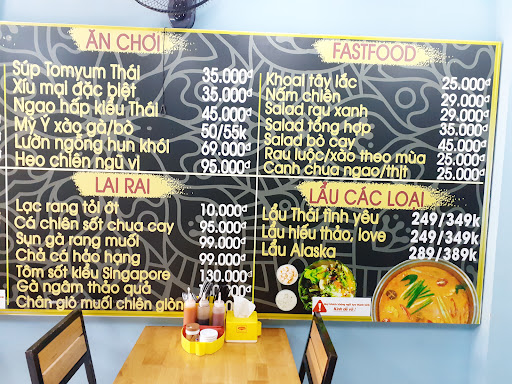 ĂN CHƠI
Súp Tomyum Thái 35.000đ
Xíu mại đặc biệt 35.000đ
Ngao hấp kiểu Thái 45.000đ
Mỳ Ý xào gà/bò 50/55k
Lườn ngỗng hun khói 69.000đ
Heo chiên ngũ vị 95.000đ
LAI RAI
Lạc rang tỏi ớt 10.000đ
Cá chiên sốt chua cay 95.000đ
Sụn gà rang muối 99.000đ
Chả cá hảo hạng 99.000đ
Tôm sốt kiểu Singapore 130.000đ
Gà ngâm thảo quả
Chân giò muối chiên giòn
FASTFOOD
Khoai tây lắc 25.000đ
Nấm chiên 29.000đ
Salad rau xanh 29.000đ
Salad tổng hợp 35.000đ
Salad bò cay 45.000đ
Rau luộc/xào theo mùa 25.000đ
Canh chua ngao/thịt 25.000đ
LẨU CÁC LOẠI
Lẩu Thái tình yêu 249/349k
Lẩu hiếu thảo, love 249/349k
Lẩu Alaska 289/389k